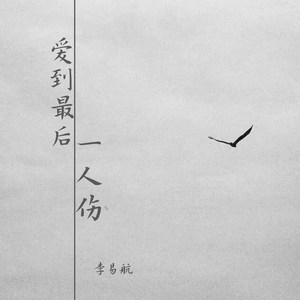 爱到最后
一人伤
李易航